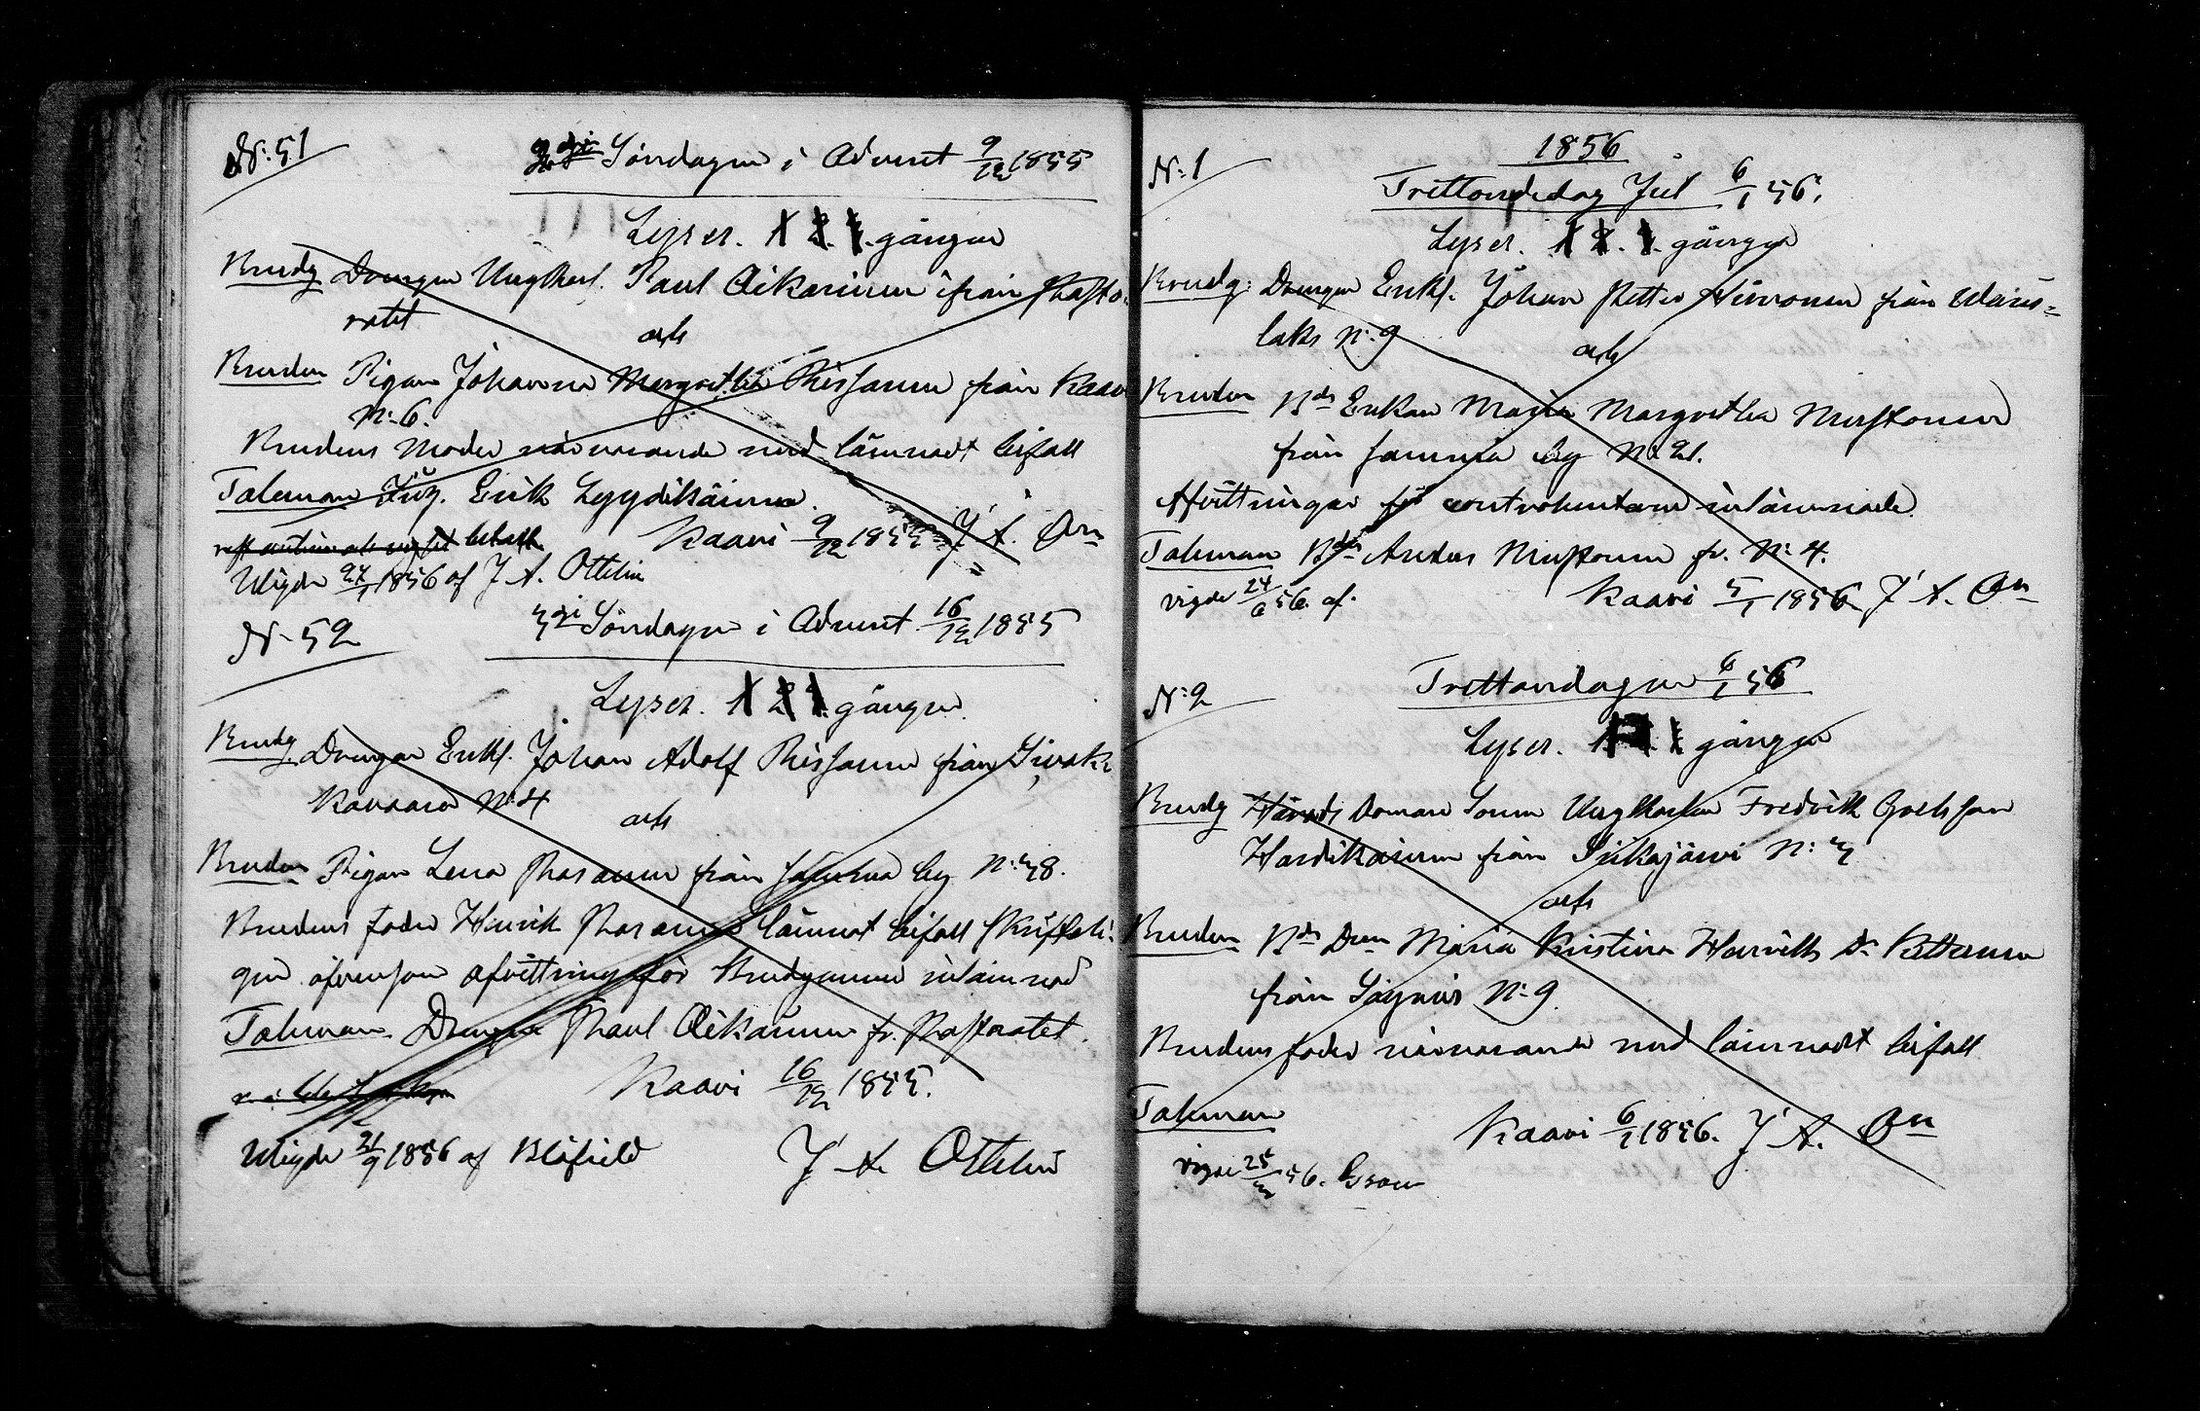 N:51
2dje Söndagen i Advent 9/12 1855
Lyser. 1 2. 3. gången
Brudg Drengen Ungkarl. Paul Oikarinen ifrån Pasto-
ratet
och
Bruden Pigan Johanna Margretha Rissanen från Kaavi
N:6.
Brudens Moder närvarande med lämnadt bifall
Taleman Erik Lyydikäinen.
betalt
Kaavi 9/12 1855 J. A. On
Wigde 27/1 1856 af J A. Ottelin
N:52
3dje Söndagen i Advent 16/12 1855
Lyser. 1 2 3. gången
Brudg Drengen Enkl. Johan Adolf Rissanen från Sivak
kavaara N:4
och
Bruden Pigan Lena Räsänen från by N:38.
Brudens fader Henrik Räsänen lämnat bifall skrifteli-
gen äfvensom afvittring för Brudgummen inlämnad
Taleman. Drengen Paul Oikarinen fr. Pastoratet.
Kaavi 16/12 1855.
Wigde 21/9 1856 af Blåfield
J A Ottelin
1856
N:1
Trettondedag Jul 6/1 56.
Lyser. 1 2. 3. gången
Brudg: Drengen Enkl. Johan Petter Hirvonen från
laks N:9
och
Bruden Bde Enkan Maria Margretha Mustonen
från by N:21.
Afvittringar för contrahenterne inlämnade.
Taleman Bde Anders Mustonen fr. N:4.
vigde 24/6 56. af.
Kaavi 5/1 1856 J A. On
N:2
Trettondagen 6/1 56
Lyser. 1 gången
Brudg Härads Domare Sonen Ungkarlen Fredrik Joelsson
Hardikainen från Siikajärvi N:3
och
Bruden Bde Drn Maria Kristina Henriks Dr Pettanen
från Säyneis N:9.
Brudens fader närvarande med lämnadt bifall
Taleman
Kaavi 6/1 1856. J A. On
vigde 25/3 56.